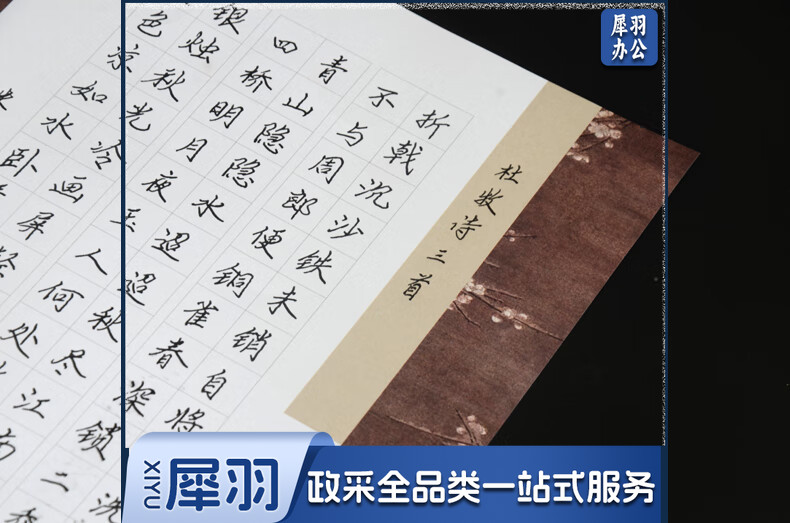 犀羽
办公
杜牧诗三首
折戟沉沙铁未销自将
洗
不与周郎便铜雀春深锁二
青山隐隐水迢迢秋尽江南
四桥明月夜玉人何处
银烛秋光冷画屏
色凉如水卧
XIYU
犀羽
政采全品类一站式服务